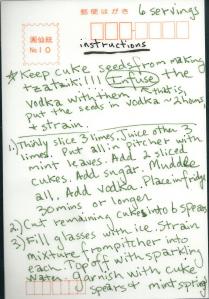 郵便はがき
6 servings
園仙紙
No 10
instructions
* Keep cuke seeds from making
tzatziki!!! Infuse the
vodka with them, that is,
put the seeds in vodka ~ 2 hours,
+ strain.
1.) Thinly slice 3 limes. Juice other 3
limes. Put all in pitcher with
mint leaves. Add 2 sliced
cukes. Add sugar. Muddle
all. Add vodka. Place in fridge
30 mins or longer
2) Cut remaining cukes into 6 spears
3) Fill glasses with ice. Strain
mixture from pitcher into
each. Top off with sparkling
water. Garnish with cuke
spears + mint sprig